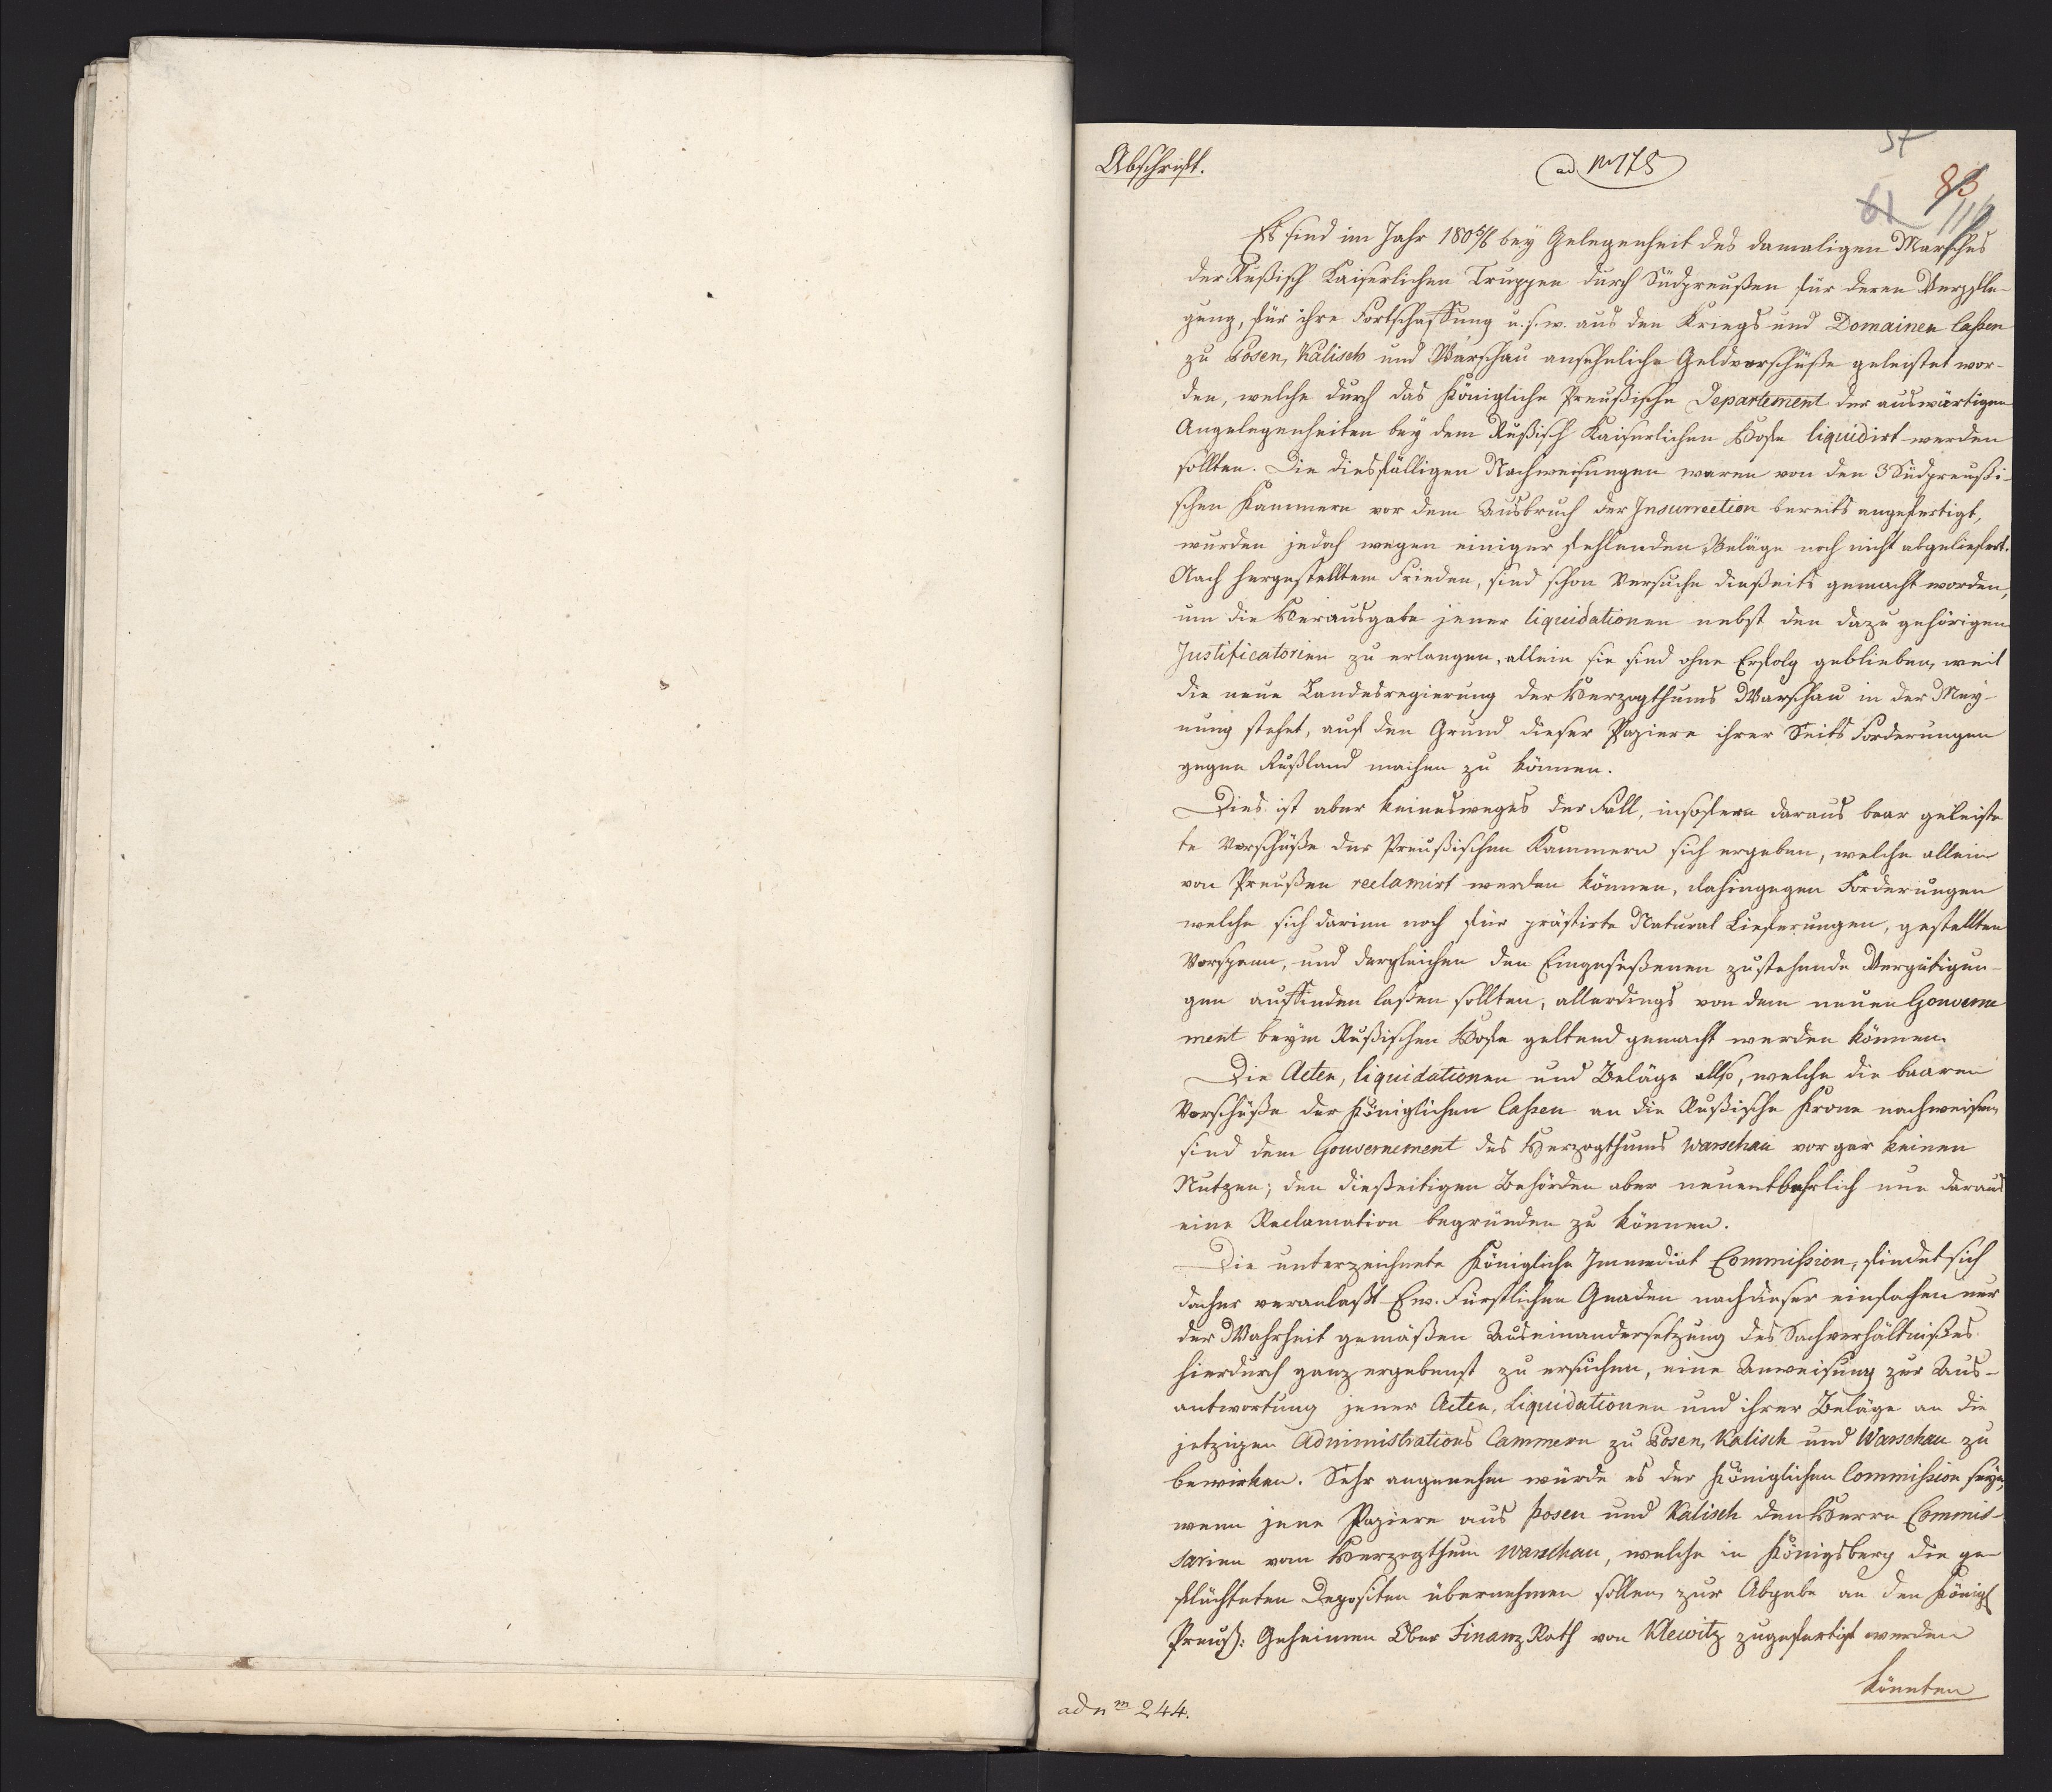 Abschrift.
ad no 178
57
83
61
116
Es sind im Jahr 180 5/6 bey Gelegenheit des damaligen Marsches
der Rußisch Kaiserlichen Truppen durch Südpreußen für deren Verpfle-
gung, für ihre Fortschaffung u. s. w. aus den Kriegs und Domainen Caßen
zu Posen, Kalisch und Warschau ansehnliche Geldvorschüße geleistet wor-
den, welche durch das Königliche Preußische Departement der auswärtigen
Angelegenheiten bey dem Rußisch Kaiserlichen Hofe liquidirt werden
sollten. Die diesfälligen Nachweisungen waren von den 3 Südpreußi-
schen Kammern vor dem Ausbruch der Insurrection bereits angefertigt,
wurden jedoch wegen einiger fehlenden Beläge noch nicht abgeliefert.
Nach hergestelltem Frieden, sind schon Versuche dießeits gemacht worden,
um die Herausgabe jener liquidationen nebst den dazu gehörigen
Justificatorien zu erlangen, allein sie sind ohne Erfolg geblieben, weil
die neue Landesregierung der Herzogthums Warschau in der Mey-
nung stehet, auf den Grund dieser Papiere ihrer Seits Forderungen
gegen Rußland machen zu können.
Dies ist aber keinesweges der Fall, insofern daraus baar geleiste
te Vorschüße der Preußischen Kammern sich ergeben, welche allein
von Preußen reclamirt werden können, dahingegen Forderungen
welche sich darinn noch für prästirte Natural Lieferungen, gestellten
Vorspann, und dergleichen den Eingeseßenen zustehende Vergütigun-
gen auffinden laßen sollten, allerdings von dem neuen Gouverne
ment beym Rußischen Hofe geltend gemacht werden können.
Die Acten, liquidationen und Beläge also, welche die baaren
Vorschüße der Königlichen Caßen an die Rußische Krone nachweisen,
sind dem Gouvernement des Herzogthums Warschau vor gar keinen
Nutzen; den dießeitigen Behörden aber unentbehrlich um daraus
eine Reclamation begründen zu können.
Die unterzeichnete Königliche Immediat Commißion, findet sich
daher veranlaßt Ew. Fürstlichen Gnaden nach dieser einfachen nur
der Wahrheit gemäßen Auseinandersetzung des Sachverhältnißes
hierdurch ganz ergebenst zu ersuchen, eine Anweisung zur Aus-
antwortung jener Acten, Liquidationen und ihrer Beläge an die
jetzigen Administrations Cammern zu Posen, Kalisch und Warschau zu
bewirken. Sehr angenehm würde es der Königlichen Commißion seyn,
wenn jene Papiere aus Posen und Kalisch den Herrn Commis-
sarien vom Herzogthum Warschau, welche in Königsberg die ge-
flüchteten Depositen übernehmen sollen, zur Abgabe an den Königl
Preuß: Geheimen Ober Finanz Rath von Klewitz zugefertigt werden
könnten
ad nm 244.